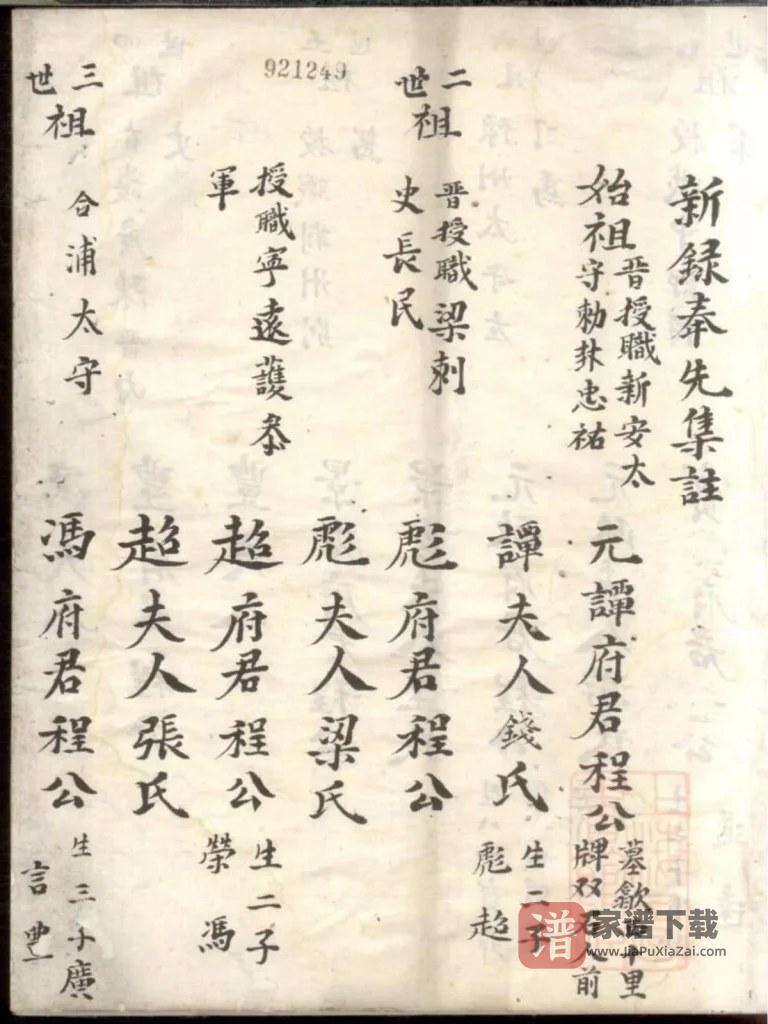 921249
新録奉先集註
始祖
晋授職新安太
守勅封忠祐
元譚府君程公
墓歙
里
牌双石人前
譚夫人錢氏
生二子
彪超
二世祖
晋授職梁刺
史長民
彪府君程公
彪夫人梁氏
授職寧遠護叅
軍
超府君程公
生二子
榮馮
超夫人張氏
三世祖
合浦太守
馮府君程公
生三子廣
言豐
谱 家谱下载
www.JiaPuXiaZai.com